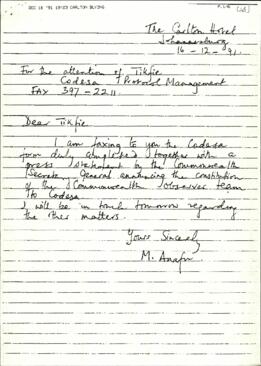 DEC 16 '91 19:23 CARLTON BLVING
The Carlton Hotel
Johannesburg
16-12-91.
For the attention of Tikfie
Codesa Protocol Management
FAX 397-2211.
Dear Tikfie
I am faxing to you the Codesa
form duly completed together with a
press statement by the Commonwealth
Secretary General announcing the constitution
of the Commonwealth observer team
to Codesa.
I will be in touch tomorrow regarding
the other matters.
Yours Sincerely
M. Anafu